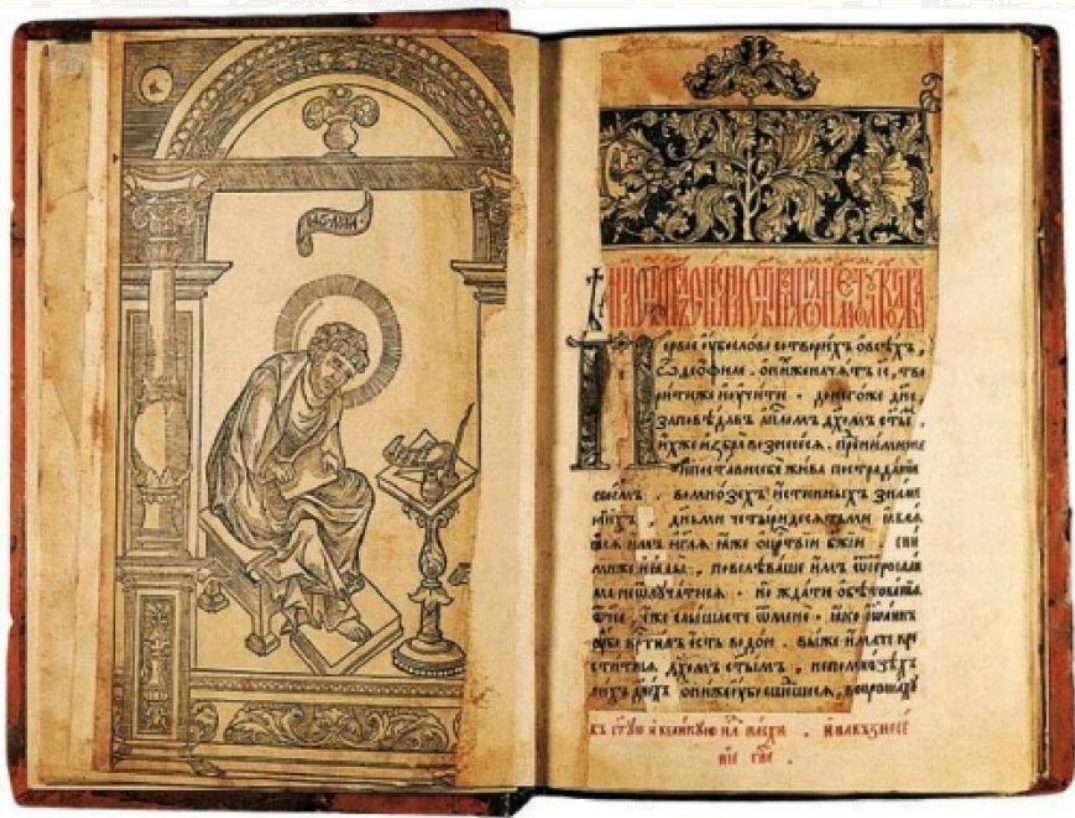 Первое ѹбо слово сотворихъ ѡ всѣхъ,
ѽ ѳеофиле. ѡ нихже начатъ і҃с, тво
рити же и ѹчити. до негоже дн҃е,
заповѣдавъ ап҃лом дх҃омъ ст҃ыⷨ,
ихже избра вознесеся. пред нимиже
и постави себе жива по страдании
своемъ. во мнозѣхъ истинныхъ знаме
ниихъ, дньми четыридесятьми ꙗвлѧ
ꙗсѧ имъ и гл҃ѧ ꙗже ѡ црⷭ҇твїи бж҃іи. сни
миже и ꙗды, повелѣваше имъ ѿ іеросали
ма не ѿлучатися. но ждати обѣтованїѧ
ѿче, еже слышасте ѿ мене. ꙗко іѡаннъ
ѹбо крт҃илъ есть водою. вы же имате кре
ститисѧ дх҃омъ ст҃ымъ, не по мнозѣхъ
сихъ дн҃ехъ. они же ѹбо сшедшесѧ, вопрошахѹ
въ ст҃ую и великую нⷣе҇лю пасхи. и на възнесе
нїе гн҃е.